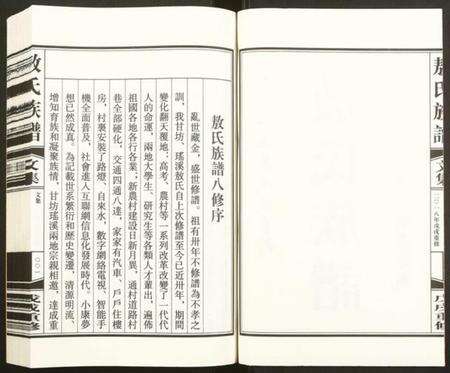 敖氏族譜八修序
亂世藏金，盛世修譜。祖有卅年不修譜為不孝之
訓，我甘坊、瑤溪敖氏自上次修譜至今已近卅年，期間
變化翻天覆地，高考、農村等一系列改革改變了一代代
人的命運，兩地大學生、研究生等各類人才輩出，遍佈
祖國各地各行各業；新農村建設日新月異，通村道路村
巷全部硬化，交通四通八達，家家有汽車、戶戶住樓
房，村裏安裝了路燈、自來水，數字網絡電視、智能手
機全面普及，社會進入互聯網信息化發展時代，小康夢
想已然成真。為記載世系繁衍和歷史變遷，清源明流，
增知育族和凝聚族情，甘坊瑤溪兩地宗親相邀，達成重
敖氏族譜
文集
文集
〇〇一
戊戌重修
敖氏族譜
文集
二〇一八年戊戌重修
戊戌重修